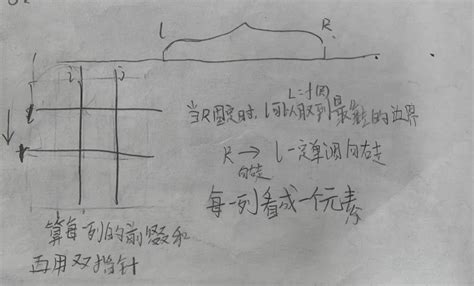 l R
i j
L=f(R)
当R固定时, l可以取到最左的边界
R → l一定单调向右走
向右走
每一列看成一个元素
算每一列的前缀和
再用双指针